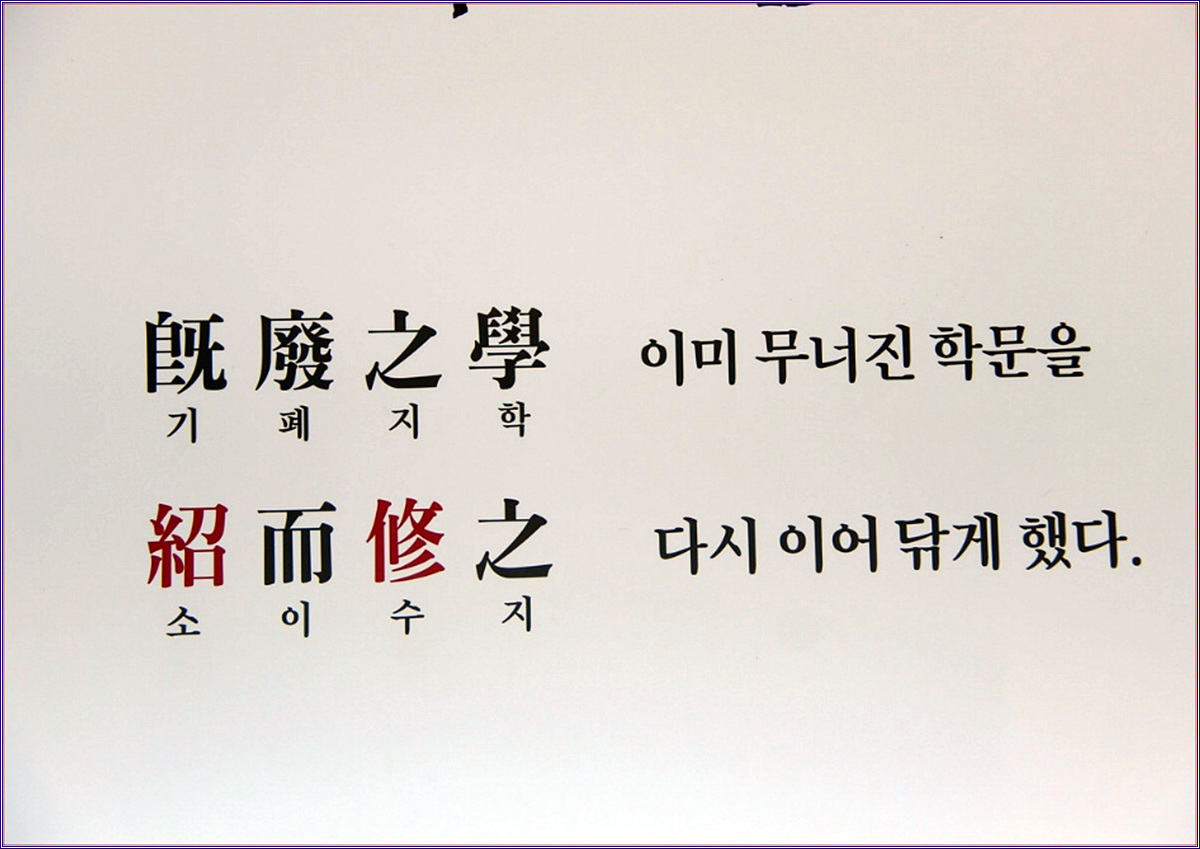 旣廢之學 이미 무너진 학문을
기 폐 지 학
紹而修之 다시 이어 닦게 했다.
소 이 수 지